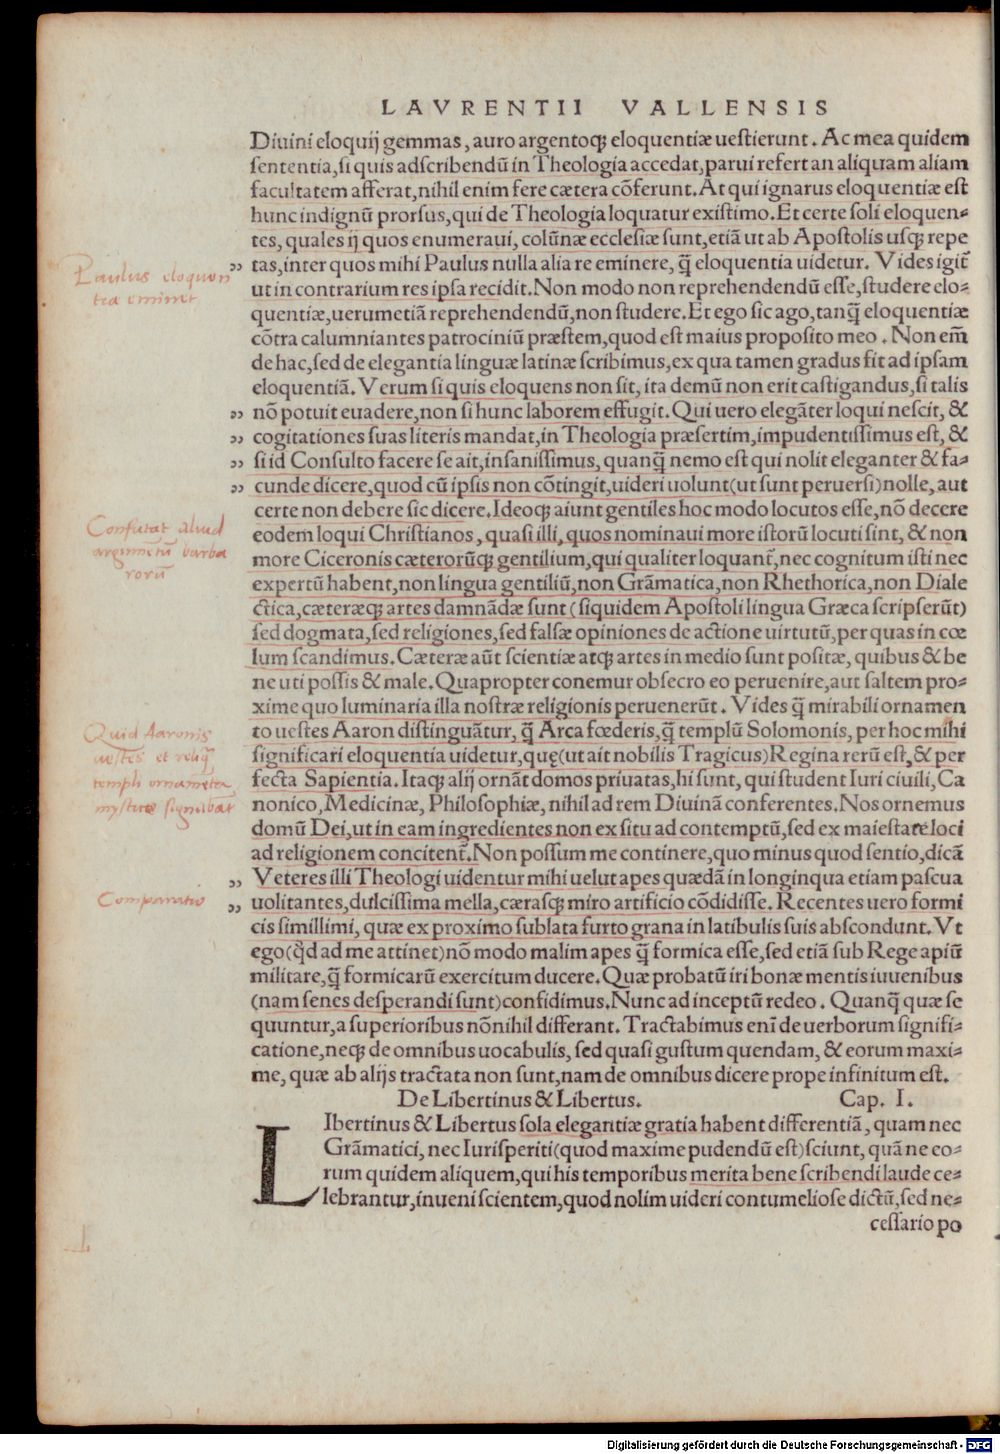 LAVRENTII VALLENSIS
Diuini eloquij gemmas, auro argentoq; eloquentiæ uestierunt. Ac mea quidem
sententia, si quis adscribendũ in Theologia accedat, parui refert an aliquam aliam
facultatem afferat, nihil enim fere cætera cõferunt. At qui ignarus eloquentiæ est
hunc indignũ prorsus, qui de Theologia loquatur existimo. Et certe soli eloquen-
tes, quales ij quos enumeraui, colũnæ ecclesiæ sunt, etiã ut ab Apostolis usq; repe
Paulus eloquen
tia eminet
„ tas, inter quos mihi Paulus nulla alia re eminere, q̃ eloquentia uidetur. Vides igit̃
ut in contrarium res ipsa recidit. Non modo non reprehendendũ esse, studere elo-
quentiæ, uerumetiã reprehendendũ, non studere. Et ego sic ago, tanq̃ eloquentiæ
cõtra calumniantes patrociniũ præstem, quod est maius proposito meo. Non em̃
de hac, sed de elegantia linguæ latinæ scribimus, ex qua tamen gradus fit ad ipsam
eloquentiã. Verum si quis eloquens non sit, ita demũ non erit castigandus, si talis
„ nõ potuit euadere, non si hunc laborem effugit. Qui uero elegãter loqui nescit, &
„ cogitationes suas literis mandat, in Theologia præsertim, impudentissimus est, &
„ si id Consulto facere se ait, insanissimus, quanq̃ nemo est qui nolit eleganter & fa-
„ cunde dicere, quod cũ ipsis non cõtingit, uideri uolunt (ut sunt peruersi) nolle, aut
certe non debere sic dicere. Ideoq; aiunt gentiles hoc modo locutos esse, nõ decere
Confutat aliud
argumẽtũ barba
rorũ
eodem loqui Christianos, quasi illi, quos nominaui more istorũ locuti sint, & non
more Ciceronis cæterorũq; gentilium, qui qualiter loquant̃, nec cognitum isti nec
expertũ habent, non lingua gentiliũ, non Grãmatica, non Rhethorica, non Diale
ctica, cæteræq; artes damnãdæ sunt (siquidem Apostoli lingua Græca scripserũt)
sed dogmata, sed religiones, sed falsæ opiniones de actione uirtutũ, per quas in cœ
lum scandimus. Cæteræ aũt scientiæ atq; artes in medio sunt positæ, quibus & be
ne uti possis & male. Quapropter conemur obsecro eo peruenire, aut saltem pro-
xime quo luminaria illa nostræ religionis peruenerũt. Vides q̃ mirabili ornamen
Quid Aaronis
uestes et reliq̃
templi ornamẽta
mysticæ significãt
to uestes Aaron distinguãtur, q̃ Arca fœderis, q̃ templũ Solomonis, per hoc mihi
significari eloquentia uidetur, quę (ut ait nobilis Tragicus) Regina rerũ est, & per
fecta Sapientia. Itaq; alij ornãt domos priuatas, hi sunt, qui student Iuri ciuili, Ca
nonico, Medicinæ, Philosophiæ, nihil ad rem Diuinã conferentes. Nos ornemus
domũ Dei, ut in eam ingredientes non ex situ ad contemptũ, sed ex maiestate loci
ad religionem concitent̃. Non possum me continere, quo minus quod sentio, dicã
Comparatio
„ Veteres illi Theologi uidentur mihi uelut apes quædã in longinqua etiam pascua
„ uolitantes, dulcissima mella, cærasq; miro artificio cõdidisse. Recentes uero formi
cis simillimi, quæ ex proximo sublata furto grana in latibulis suis abscondunt. Vt
ego (q̃d ad me attinet) nõ modo malim apes q̃ formica esse, sed etiã sub Rege apiũ
militare, q̃ formicarũ exercitum ducere. Quæ probatũ iri bonæ mentis iuuenibus
(nam senes desperandi sunt) confidimus. Nunc ad inceptũ redeo. Quanq̃ quæ se
quuntur, a superioribus nõnihil differant. Tractabimus eni̅ de uerborum signifi-
catione, neq; de omnibus uocabulis, sed quasi gustum quendam, & eorum maxi-
me, quæ ab alijs tractata non sunt, nam de omnibus dicere prope infinitum est.
De Libertinus & Libertus. Cap. I.
LIbertinus & Libertus sola elegantiæ gratia habent differentiã, quam nec
Grãmatici, nec Iurisperiti (quod maxime pudendũ est) sciunt, quã ne co-
rum quidem aliquem, qui his temporibus merita bene scribendi laude ce-
lebrantur, inueni scientem, quod nolim uideri contumeliose dictũ, sed ne-
cessario po
Digitalisierung gefördert durch die Deutsche Forschungsgemeinschaft - DFG